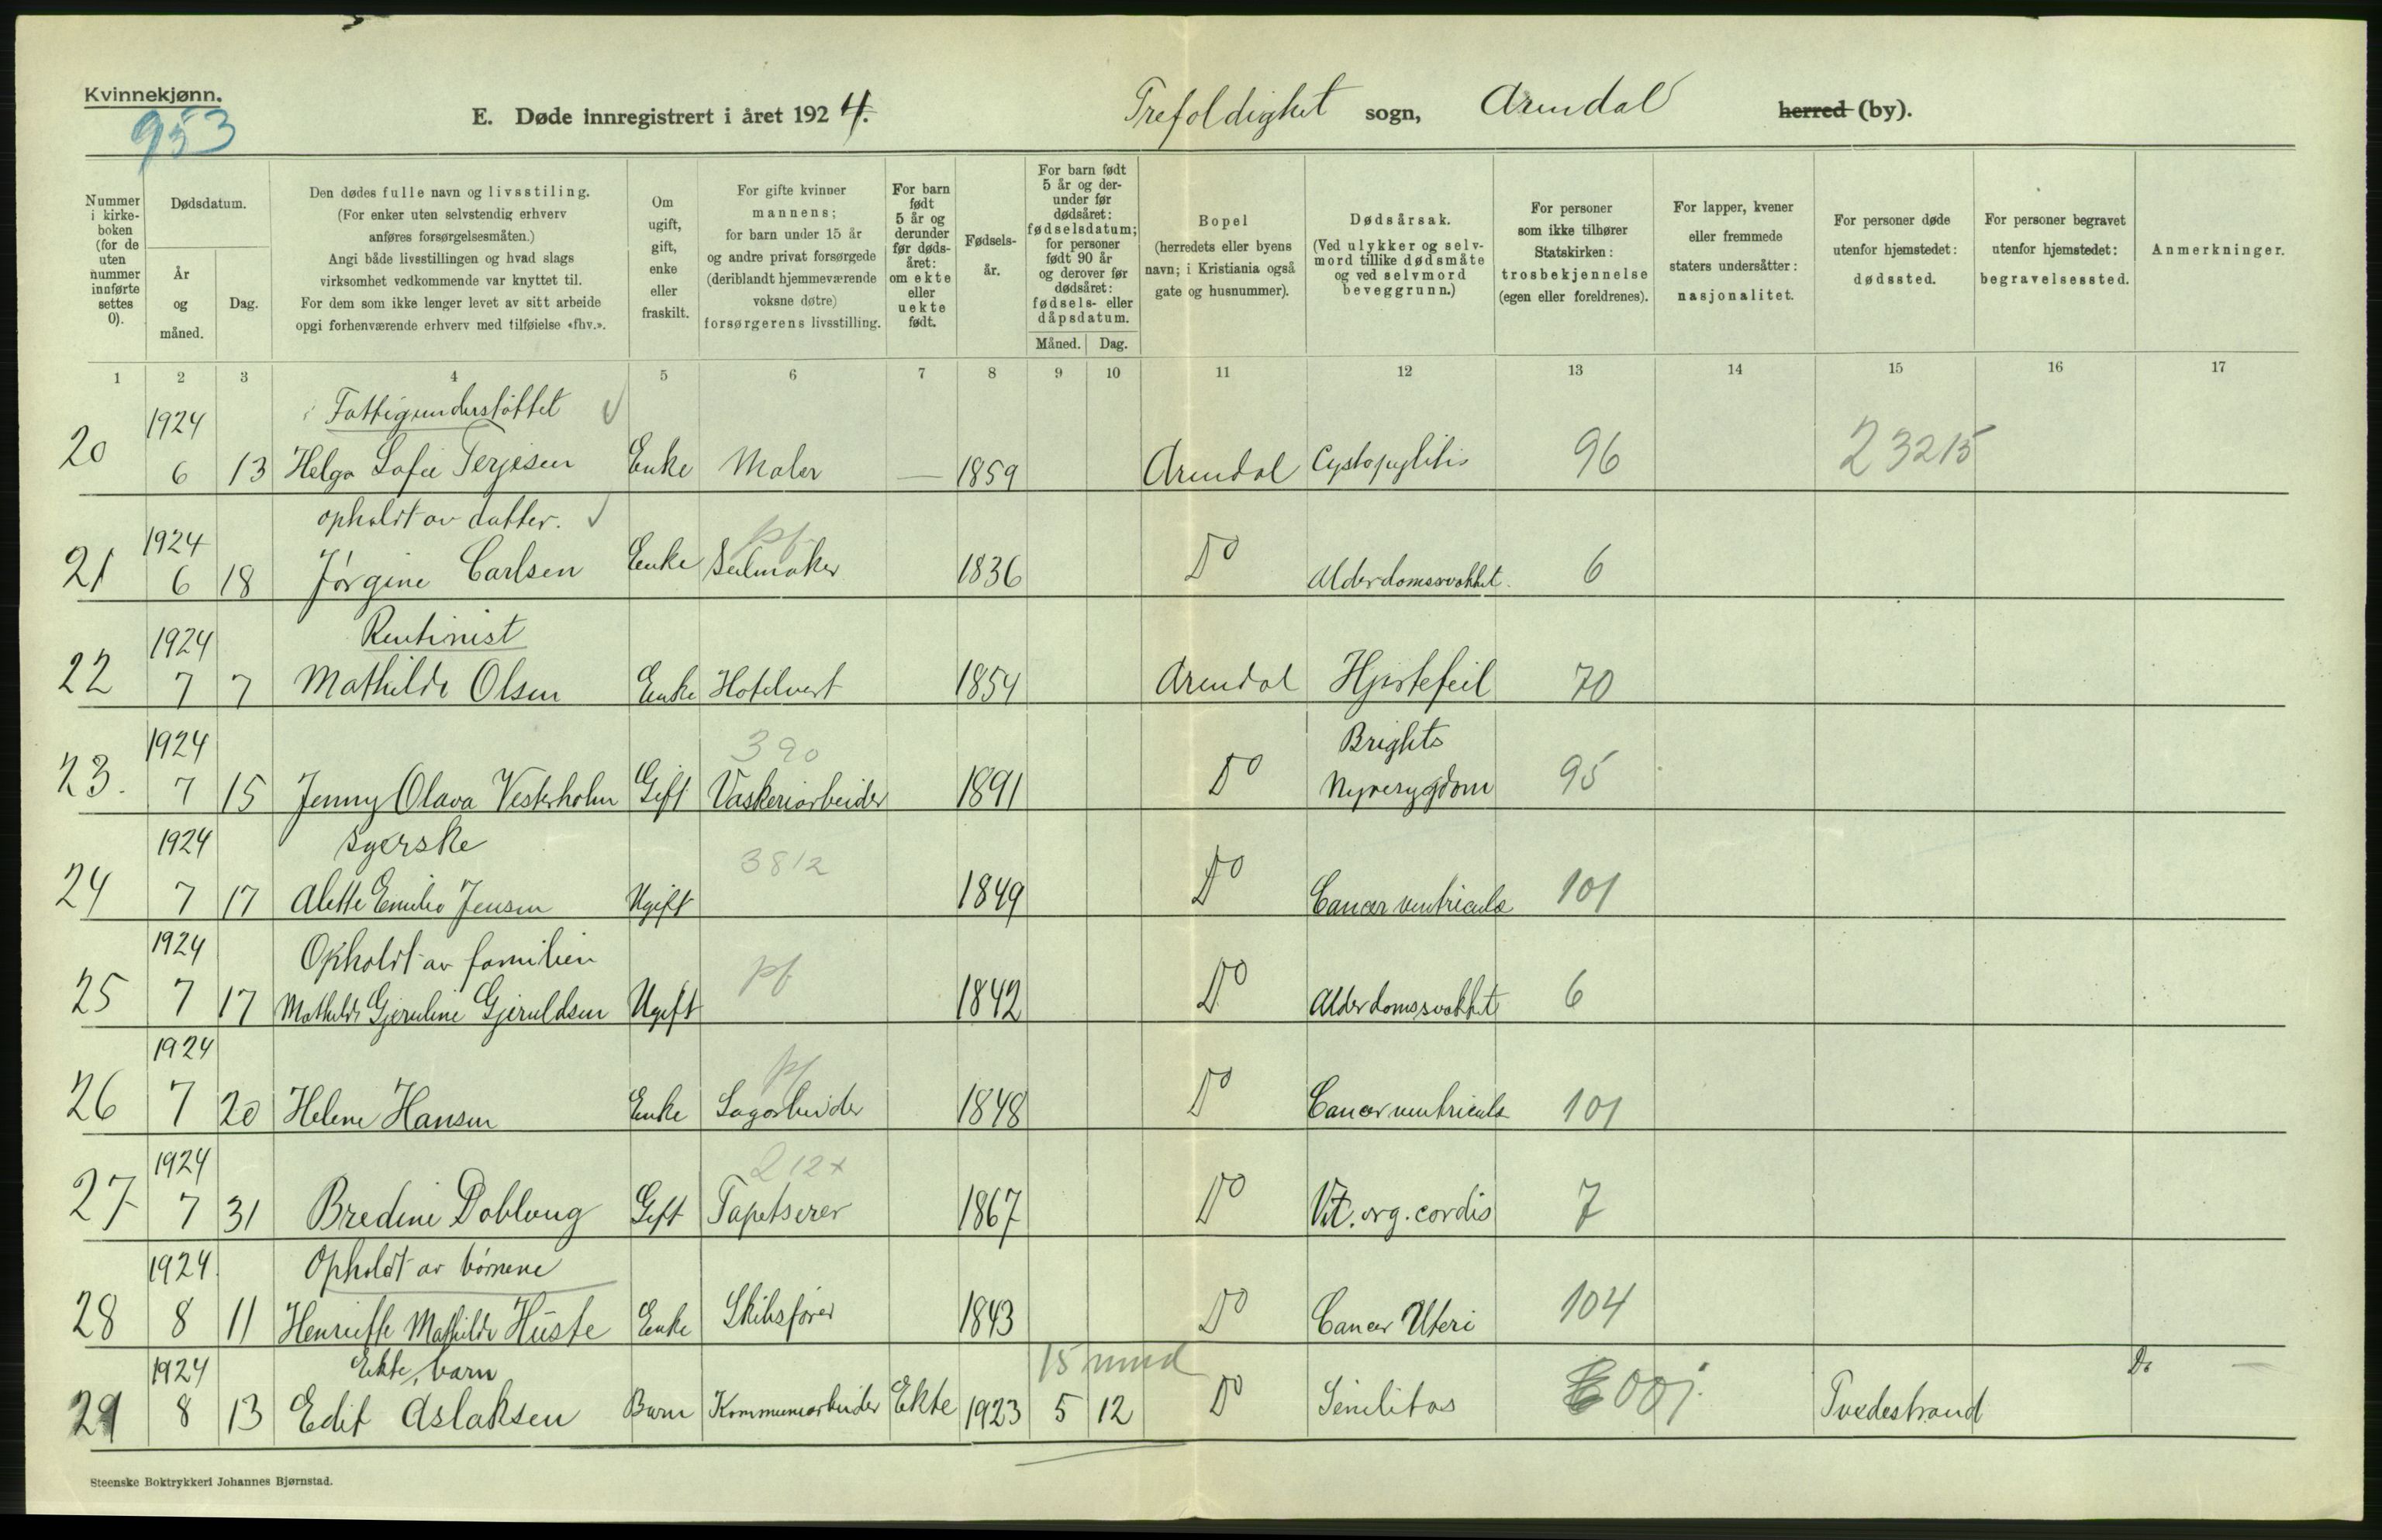 Kvinnekjønn.
953
E. Døde innregistrert i året 1924.
Trefoldighet sogn, Arendal herred (by).
Nummer i kirkeboken (for de uten nummer innførte settes 0).
Dødsdatum.
År og måned.
Dag.
Den dødes fulle navn og livsstilling.
(For enker uten selvstendig erhverv
anføres forsørgelsesmåten.)
Angi både livsstillingen og hvad slags
virksomhet vedkommende var knyttet til.
For dem som ikke lenger levet av sitt arbeide
opgi forhenværende erhverv med tilføielse «fhv.».
Om ugift, gift, enke eller fraskilt.
For gifte kvinner
mannens;
for barn under 15 år
og andre privat forsørgede
(deriblandt hjemmeværende
voksne døtre)
forsørgerens livsstilling.
For barn født 5 år og derunder før dødsåret: om ekte eller uekte født.
Fødselsår.
For barn født 5 år og derunder før dødsåret: fødselsdatum; for personer født 90 år og derover før dødsåret: fødsels- eller dåpsdatum.
Måned. Dag.
Bopel
(herredets eller byens
navn; i Kristiania også
gate og husnummer).
Dødsårsak.
(Ved ulykker og selvmord tillike dødsmåte og ved selvmord beveggrunn.)
For personer
som ikke tilhører
Statskirken:
trosbekjennelse
(egen eller foreldrenes).
For lapper, kvener
eller fremmede
staters undersåtter:
nasjonalitet.
For personer døde
utenfor hjemstedet:
dødssted.
For personer begravet
utenfor hjemstedet:
begravelsessted.
Anmerkninger.
1 2 3 4 5 6 7 8 9 10 11 12 13 14 15 16 17
1924 Fattigunderstøttet
20 6 13 Helga Sofie Terjesen Enke Maler — 1859 Arendal Cystopyelitis 96 23215
1924 opholdt av datter. pf
21 6 18 Jørgine Carlsen Enke Seilmaker 1836 Do Alderdomssvakhet. 6
1924 Rentinist
22 7 7 Mathilde Olsen Enke Hotelvert 1854 Arendal Hjertefeil 70
1924 390 Brights
23. 7 15 Jenny Olava Vesterholm Gift Vaskeriarbeider 1891 Do Nyresygdom 95
1924 Syerske 3812
24 7 17 Alette Emilie Jensen Ugift 1849 Do Cancer ventriculi 101
1924 Opholdt av familien pf
25 7 17 Mathilde Gjeruline Gjeruldsen Ugift 1842 Do Alderdomssvakhet 6
1924 pf
26 7 20 Helene Hansen Enke Sagarbeider 1848 Do Cancer ventriculi 101
1924 212x
27 7 31 Bredine Dobloug Gift Tapetserer 1867 Do Vit. org. cordis 7
1924. Opholdt av børnene
28 8 11 Henriette Mathilde Hüste Enke Skibsfører 1843 Do Cancer Uteri 104
1924 Ekte, barn 15 mnd Do —
29 8 13 Edit Aslaksen Barn Kommunearbeider Ekte 1923 5 12 Do 001. Tvedestrand
Steenske Boktrykkeri Johannes Bjørnstad.